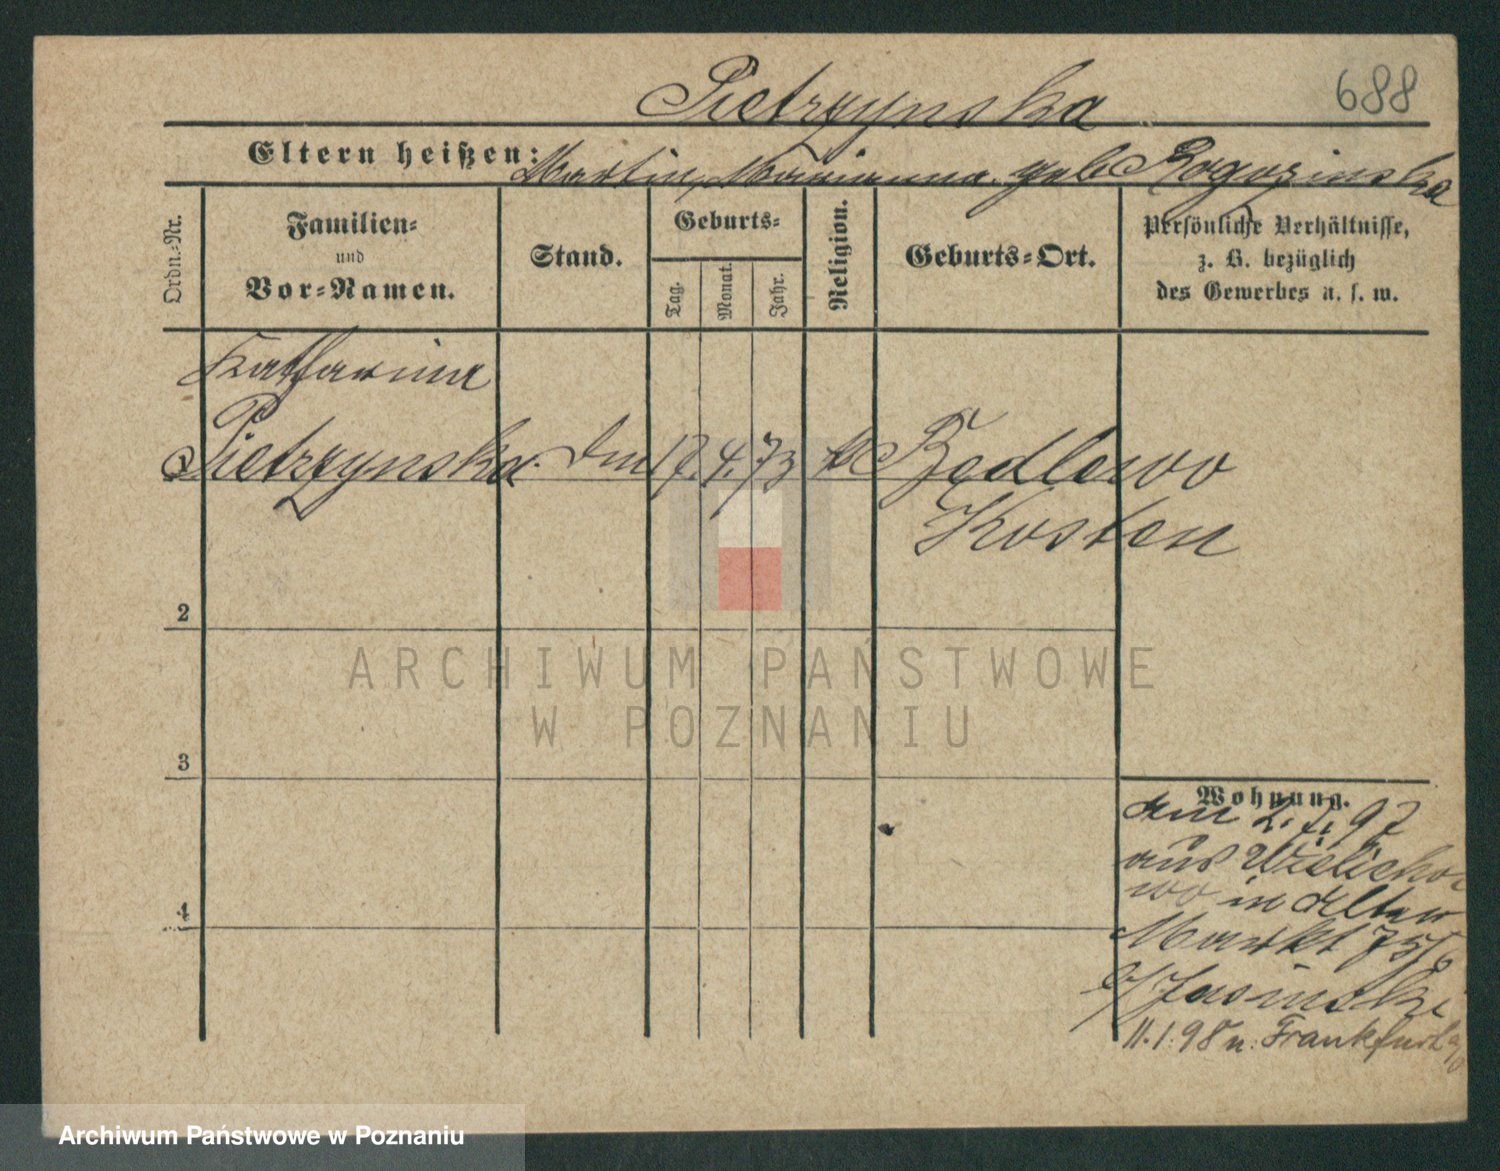 Pietrzynska
688
Eltern heißen: Martin, Marianna geb. Rogozinska
Ordn.-Nr.
Familien-
und
Vor-Namen.
Stand.
Geburts-
Tag.
Monat.
Jahr.
Religion.
Geburts-Ort.
Persönliche Verhältnisse,
z. B. bezüglich
des Gewerbes u. s. w.
Katharina
Pietrzynska. 17. 4. 73 k Będlewo
Kosten
2
3
4
Wohnung.
am 2.7.97
aus Wielicho
wo in Alter
Markt
Jasinski
11.1.98 n. Frankfurt a/O
ARCHIWUM PAŃSTWOWE
W POZNANIU
Archiwum Państwowe w Poznaniu